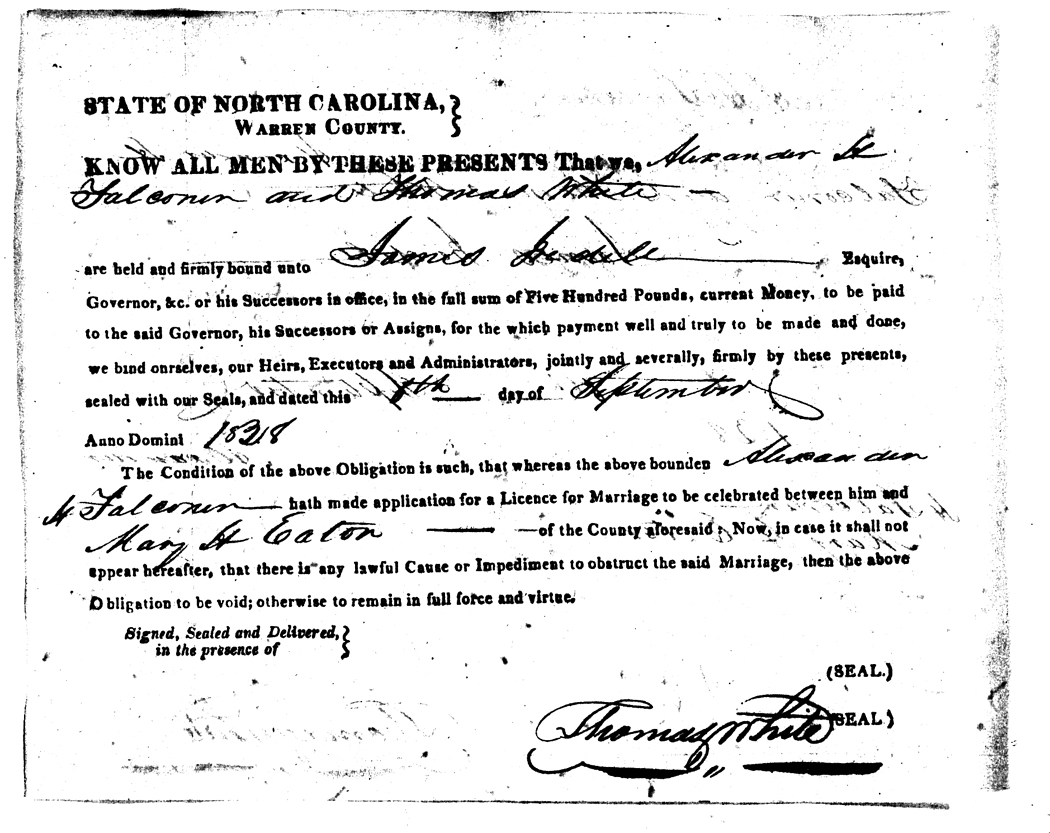 STATE OF NORTH CAROLINA,
WARREN COUNTY.
KNOW ALL MEN BY THESE PRESENTS That we, Alexander H
Falconer and Thomas White
are held and firmly bound unto James Iredell Esquire,
Governor, &c. or his Successors in office, in the full sum of Five Hundred Pounds, current Money, to be paid
to the said Governor, his Successors or Assigns, for the which payment well and truly to be made and done,
we bind ourselves, our Heirs, Executors and Administrators, jointly and severally, firmly by these presents,
sealed with our Seals, and dated this 8th day of September
Anno Domini
The Condition of the above Obligation is such, that whereas the above bounden Alexander
H Falconer hath made application for a Licence for Marriage to be celebrated between him and
Mary H Eaton of the County aforesaid; Now, in case it shall not
appear hereafter, that there is any lawful Cause or Impediment to obstruct the said Marriage, then the above
Obligation to be void; otherwise to remain in full force and virtue.
Signed, Sealed and Delivered,
in the presence of
(SEAL.)
Thomas White (SEAL)